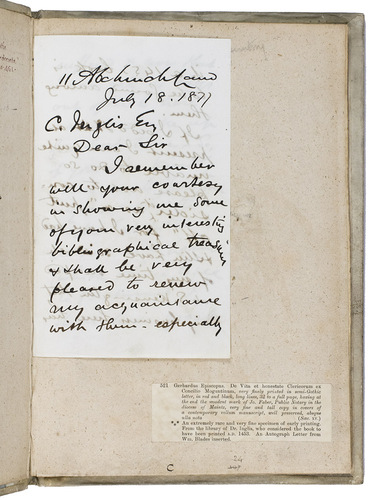 11 Abchurch Lane
July 18. 1877
C. Inglis Esq
Dear Sir
I remember
well your courtesy
in showing me some
of your very interesting
bibliographical treasures
& shall be very
pleased to renew
my acquaintance
with them - especially
511 Gerhardus Episcopus. De Vita et honestate Clericorum ex
Concilio Maguntinum, very finely printed in semi-Gothic
letter, in red and black, long lines, 32 to a full page, having at
the end the monkish mark of Jo. Faber, Public Notary in the
diocese of Mainz, very fine and tall copy in covers of
a contemporary vellum manuscript, well preserved, absque
ulla nota
*** An extremely rare and very fine specimen of early printing.
From the library of Dr. Inglis, who considered the book to
have been printed A.D. 1453. An Autograph Letter from
Wm. Blades inserted.
C
24